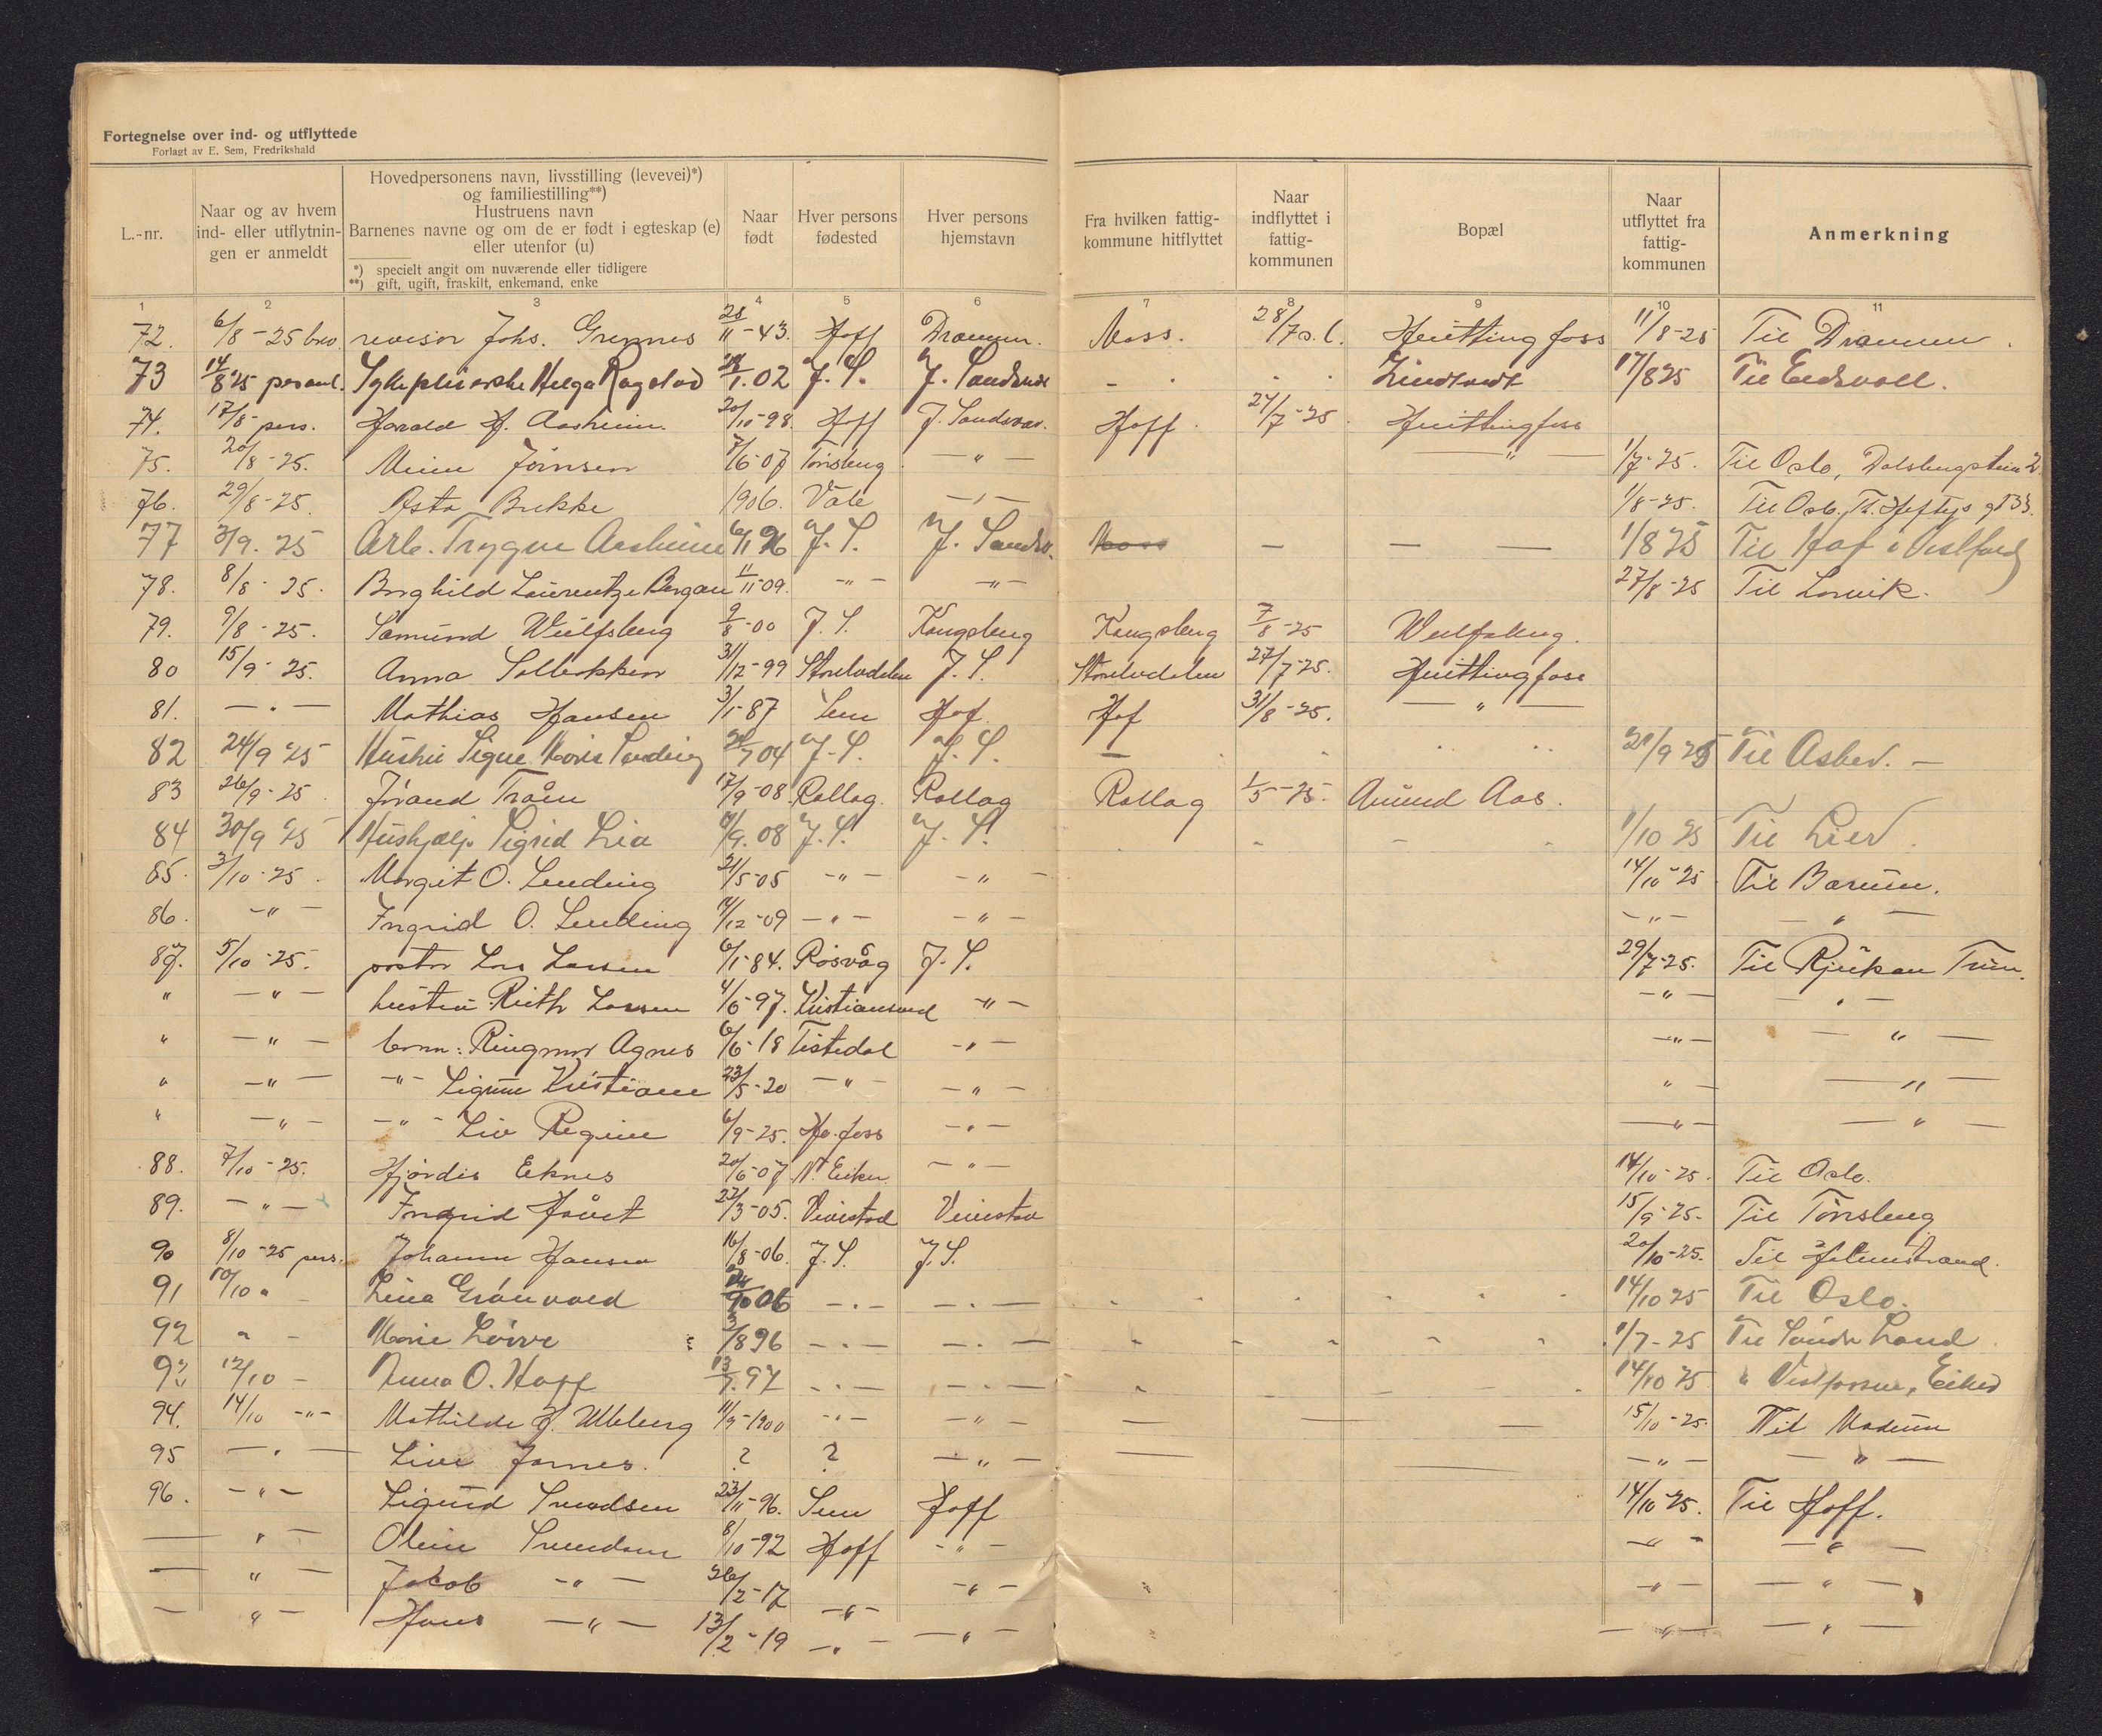 Fortegnelse over ind- og utflyttede
Forlagt av E. Sem, Fredrikshald
L.-nr.
Naar og av hvem ind- eller utflytningen er anmeldt
Hovedpersonens navn, livsstilling (levevei)*) og familiestilling**)
Hustruens navn
Barnenes navne og om de er født i egteskap (e) eller utenfor (u)
*) specielt angit om nuværende eller tidligere
**) gift, ugift, fraskilt, enkemand, enke
Naar født
Hver persons fødested
Hver persons hjemstavn
Fra hvilken fattigkommune hitflyttet
Naar indflyttet i fattigkommunen
Bopæl
Naar utflyttet fra fattigkommunen
Anmerkning
1 2 3 4 5 6 7 8 9 10 11
72. 6/8-25 brev. revisor Johs. Grennes 28/11-43. Hoff Drammn. Moss. 28/7 d.l. Hvittingfoss 11/8-25 Til Drammen.
73 14/8 25 personl. Sykepleierske Helga Rogstad 1.02 J. S. J. Sandsvær - . . . 17/8 25 Til Eidsvoll.
74. 17/8 pers. Harald H. Aasheim. 20/10-98. Hoff J. Sandsvær. Hoff. 24/7-25. Hvittingfoss
75. 20/8-25. Jørnsen 7/6-07 Tønsberg — " — — " — 1/7-25. Til Oslo,
76. 29/8-25. Asta Bukke 1906. Våle — " — 1/8-25. Til Oslo, Th. Heftys gt 33.
77 3/9. 25 Arb. Trygve Aasheim 6/11 26 J. S. J. Sandsv. Moss — — — 1/8 25 Til Hof i Vestfold
78. 8/8-25. Borghild Laurentze Bergan 11/11-09. — " — — " — 27/8-25 Til Larvik.
79. 9/8-25. Samund Wulfsberg 9/8-00 J. S. Kongsberg Kongsberg 7/8-25 Wulfsberg.
80 15/9-25. Anna Solbakken 31/12-99 Storelvdalen J. S. Storelvdalen 27/7-25. Hvittingfoss
81. — " — Mathias Hansen 3/1-87 Sem Hof. Hof 31/8-25. — " —
82 24/9 25 Hushj. Signe 04 J. S. J. S. — . . . 21/9 25 Til Asker. —
83 26/9-25. Jørand Tråen 17/9-08. Rollag. Rollag Rollag 1/5-25. Amund Aas.
84 30/9 25 Hushjelp Sigrid Lia 9. 08 J. S. J. S. 1/10 25 Til Lier.
85. 3/10-25. Margit O. Lunding 21/5-05 — " — — " — 14/10-25 Til Bærum.
86. — " — Ingrid O. Lunding 12-09 — " — — " — — " — — " —
87. 5/10-25. pastor Lars Larsen 6/1-84. Rosvåg J. S. 29/7-25. Til Rjukan Tinn.
" — " — hustru Ruth Larsen 4/6-97. Kristiansund — " — — " — — " —
" — " — barn: Ringmor Agnes 6/6-18 Tistedal — " — — " — — " —
" — " — — " — Sigrun Kristiane 23/5-20 — " — — " — " — — " —
" — " — — " — Liv Regine 6/9-25. Hv.foss — " — — " — — " —
88. 7/10-25. Hjørdis Eknes 20/6-07 N. Eiker. — " — 14/10-25. Til Oslo.
89. — " — Ingrid Håvet 22/3-05. Vivestad Vivestad 15/9-25. Til Tønsberg
90 8/10-25 pers. Johanne Hansen 16/8-06. J. S. J. S. 20/10-25. Til Holmestrand.
91 10/10 " Lina Grønvold 06 — . — — . — 14/10 25 Til Oslo.
92 " - Marie 8 96 — . — — . — 1/7-25 Til Søndre Land
93 12/10 - Anna O. Hoff 13/7. 97 — . — — . — 14/10 25 " Vestfossen, Eiker
94. 14/10 — " — Mathilde J. Ulleberg 11/9-1900 — " — — " — — — — 15/10-25. Til Modum
95 — " — Live Jornes. ? ? — " — — — — " — — " —
96. — " — Sigurd Svendsen 23/11-96. Sem Hoff 14/10-25. Til Hoff.
— " — Oline Svendsen 8/10-92 Hoff — " — — " — — " —
— " — Jakob — " — 26/2-17 — " — — " — — " — — " —
— " — Hans — " — 13/2-19 — " — — " — — " — — " —